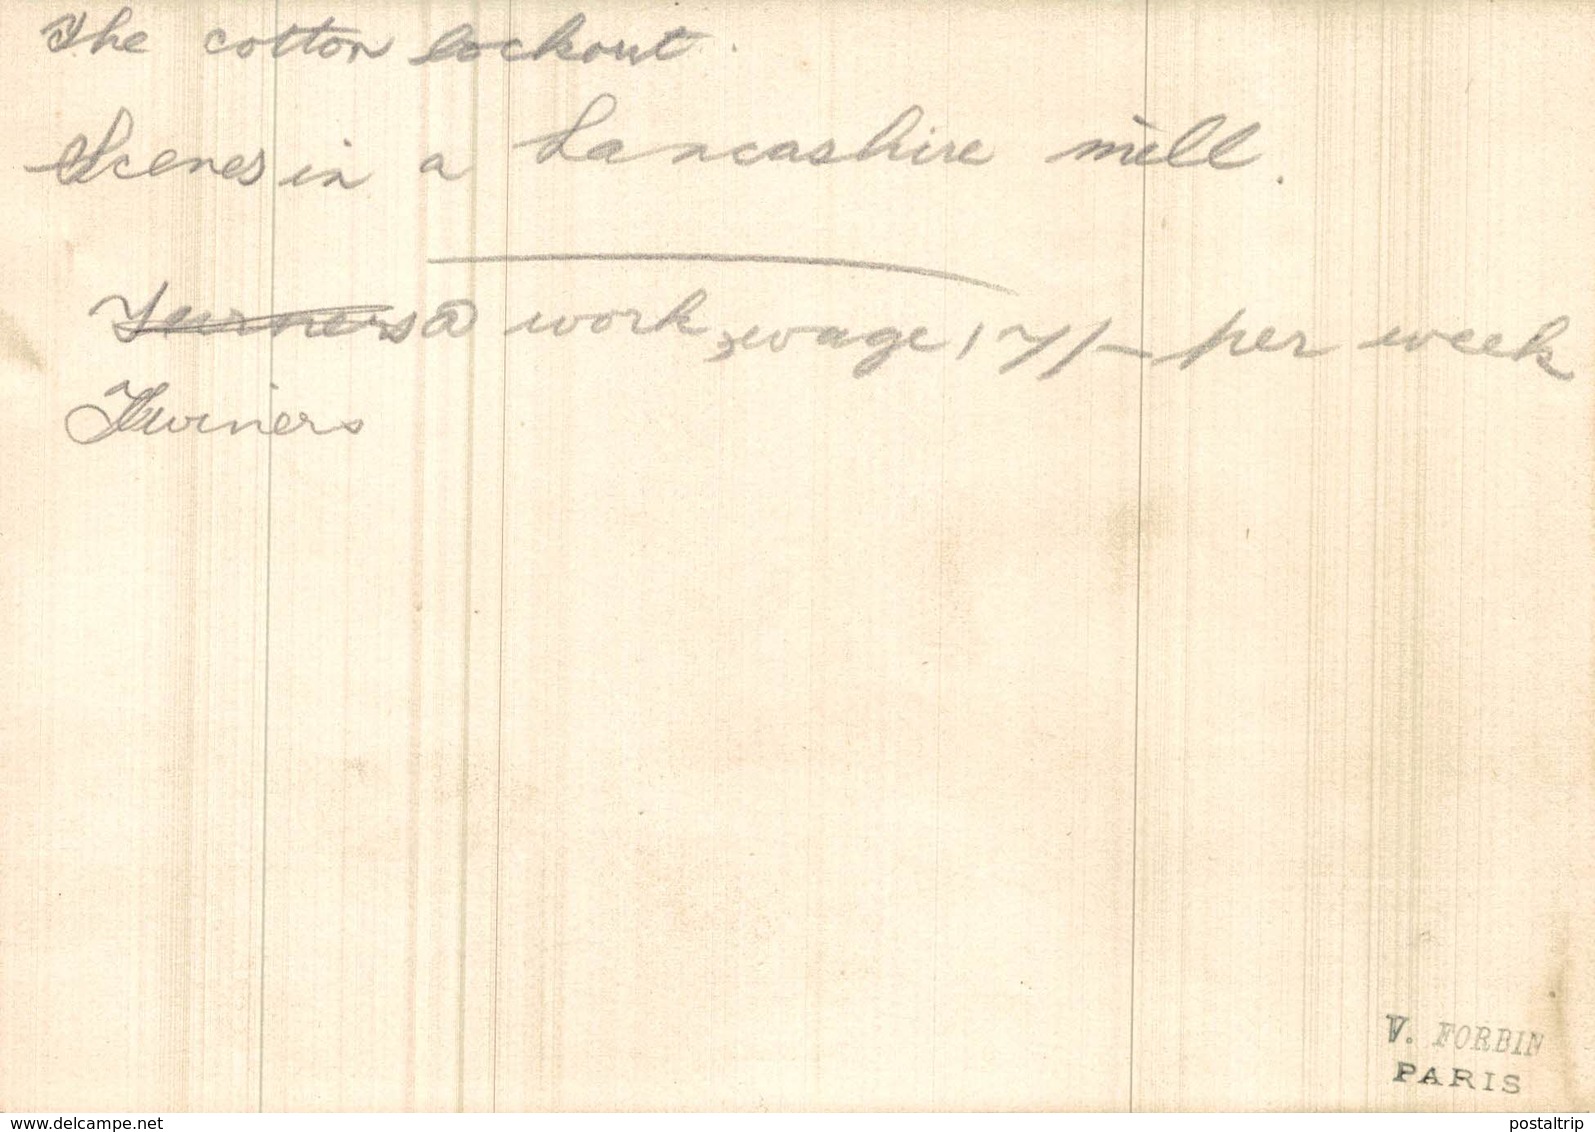 The cotton lockout.
Scenes in a Lancashire mill.
Turners @ work, wage, 17/- per week
Twiners
V. FORBIN
PARIS
www.delcampe.net
postaltrip